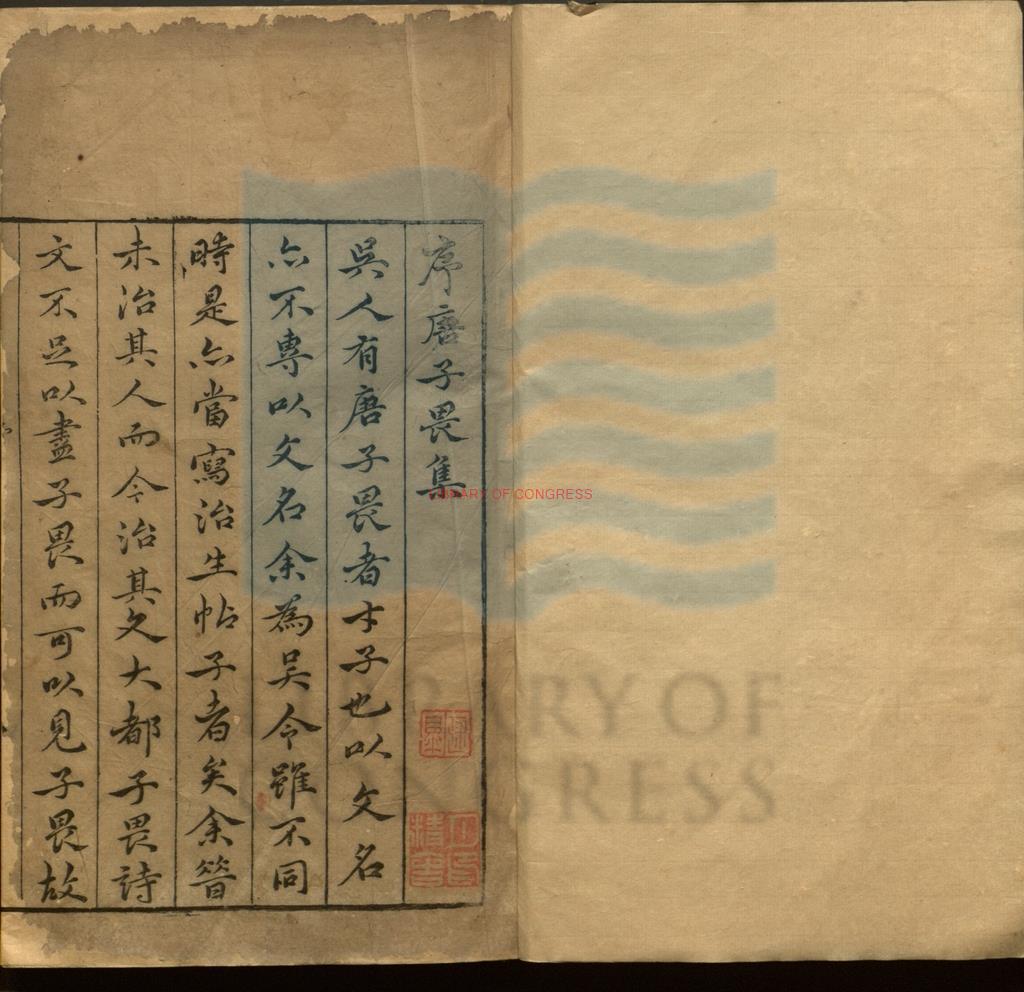 序唐子畏集
吳人有唐子畏者才子也以文名
亦不專以文名余為吳令雖不同
時是亦當寫治生帖子者矣余昝
未治其人而今治其文大都子畏詩
文不足以盡子畏而可以見子畏故
LIBRARY OF CONGRESS
LIBRARY OF
CONGRESS